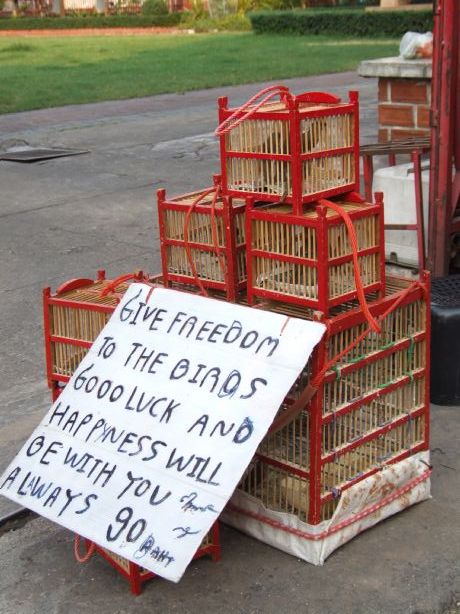 GIVE FREEDOM
TO THE BIRDS
GOOD LUCK AND
HAPPYNESS WILL
BE WITH YOU
ALWAYS 90 BAHT